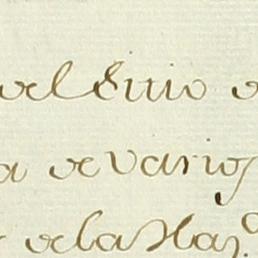 del Sitio d
a de varios
de la Haz.